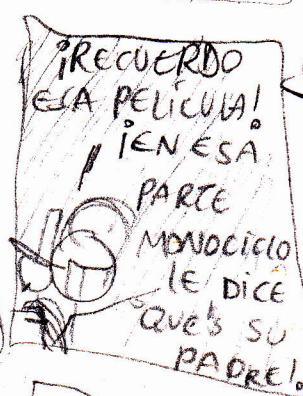 ¡RECUERDO
ESA PELÍCULA!
¡EN ESA
PARTE
MONOCICLO
LE DICE
QUE'S SU
PADRE!